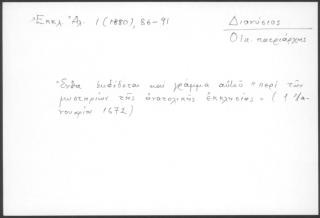 Ἐκκλ. Ἀλ. 1 (1880), 86-91
Διονύσιος
Οἰκ. πατριάρχης
Ἔνθα ἐκδίδεται καὶ γράμμα αὐτοῦ "περὶ τῶν
μυστηρίων τῆς ἀνατολικῆς ἐκκλησίας" (1 Ἰα-
νουαρίου 1672)